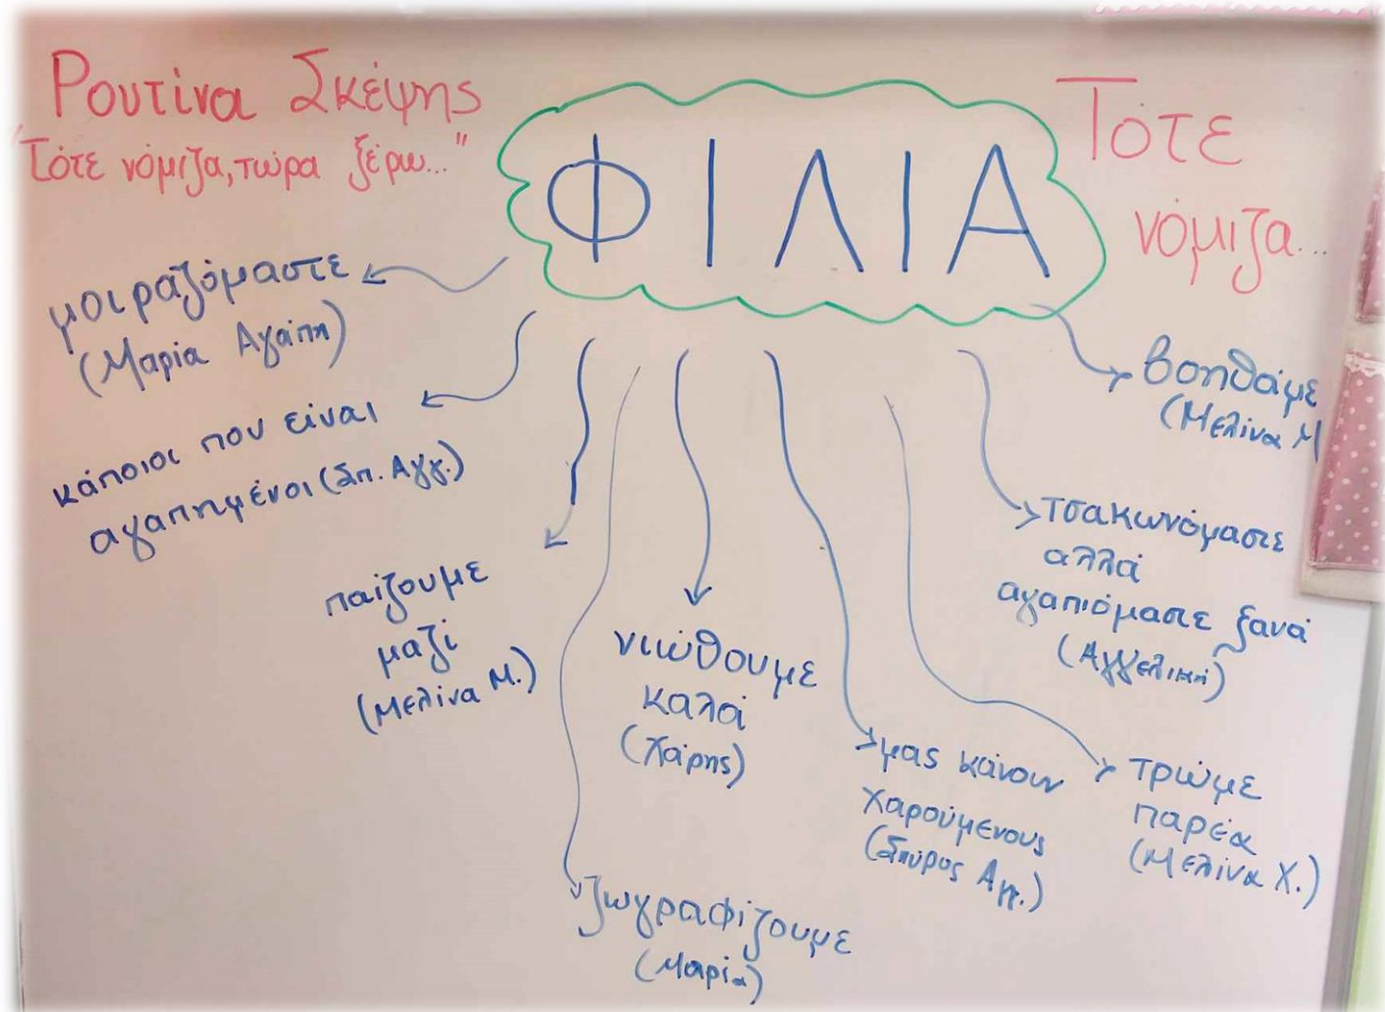 Ρουτίνα Σκέψης
"Τότε νόμιζα, τώρα ξέρω..."
ΦΙΛΙΑ
Τότε
νόμιζα...
μοιραζόμαστε
(Μαρία Αγάπη)
κάποιοι που είναι
αγαπημένοι (Σπ. Αγγ.)
παίζουμε
μαζί
(Μελίνα Μ.)
ζωγραφίζουμε
(Μαρία)
νιώθουμε
καλά
(Χάρης)
μας κάνουν
χαρούμενους
(Σπύρος Αγγ.)
τρώμε
παρέα
(Μελίνα Χ.)
τσακωνόμαστε
αλλά
αγαπιόμαστε ξανά
(Αγγελική)
βοηθάμε
(Μελίνα Μ